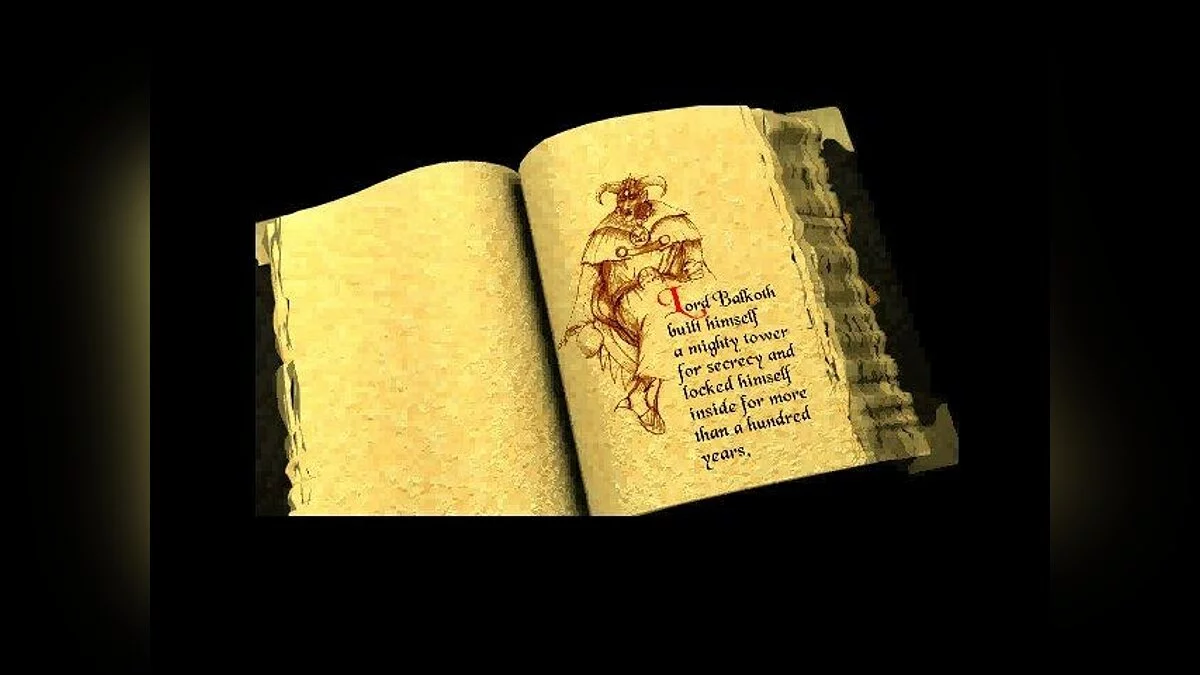 Lord Balkoth
built himself
a mighty tower
for secrecy and
locked himself
inside for more
than a hundred
years,